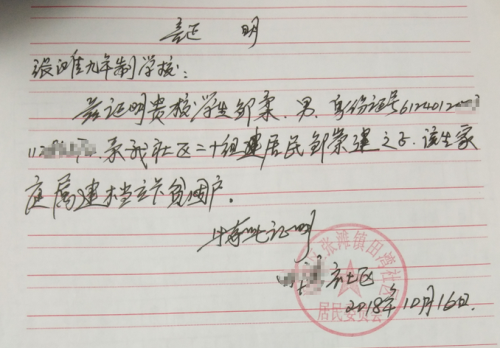 证明
张滩九年制学校：
兹证明贵校学生邹柔，男，身份证号6124012
112 系我社区二十组建居民邹荣建之子，该生家
庭属建档立卡贫困户。
特此证明
社区
2018年10月16日
张滩镇田湾社区
居民委员会